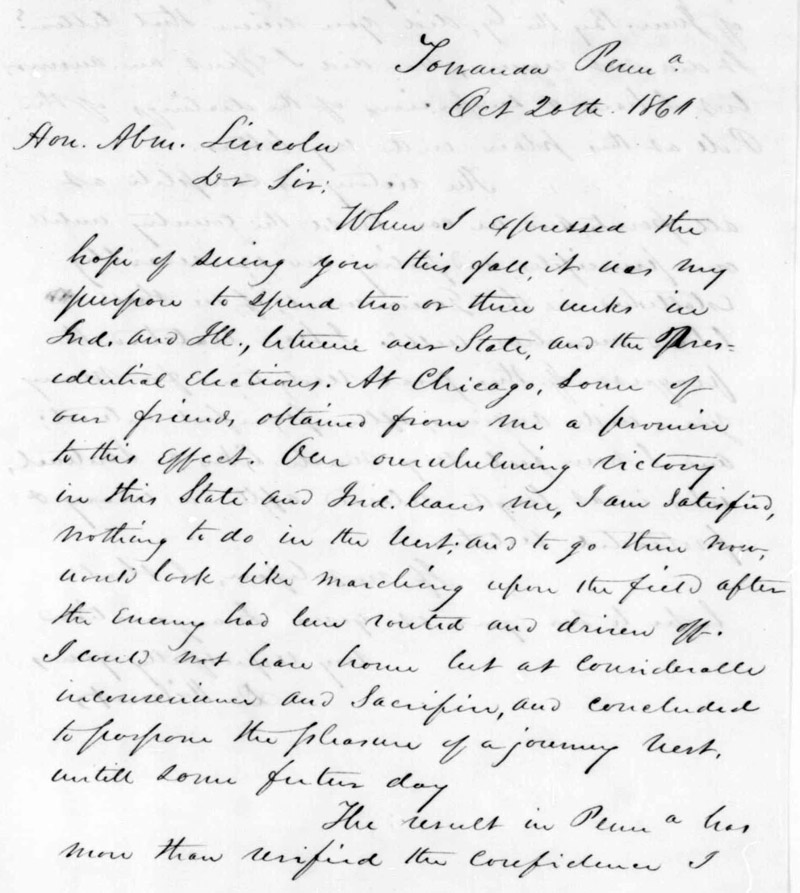 Towanda Penna.
Oct 20th. 1860
Hon. Abm. Lincoln
Dr Sir;
When I expressed the
hope of seeing you this fall, it was my
purpose to spend two or three weeks in
Ind. and Ill., between our State, and the Pres-
idential Elections. At Chicago, some of
our friends obtained from me a promise
to this effect. Our overwhelming victory
in this State and Ind. leaves me, I am satisfied,
nothing to do in the West; and to go there now,
would look like marching upon the field after
the Enemy had been routed and driven off.
I could not leave home but at considerable
inconvenience and Sacrifice, and concluded
to pospone the pleasure of a journey West,
untill some future day
The result in Penna has
more than verified the confidence I